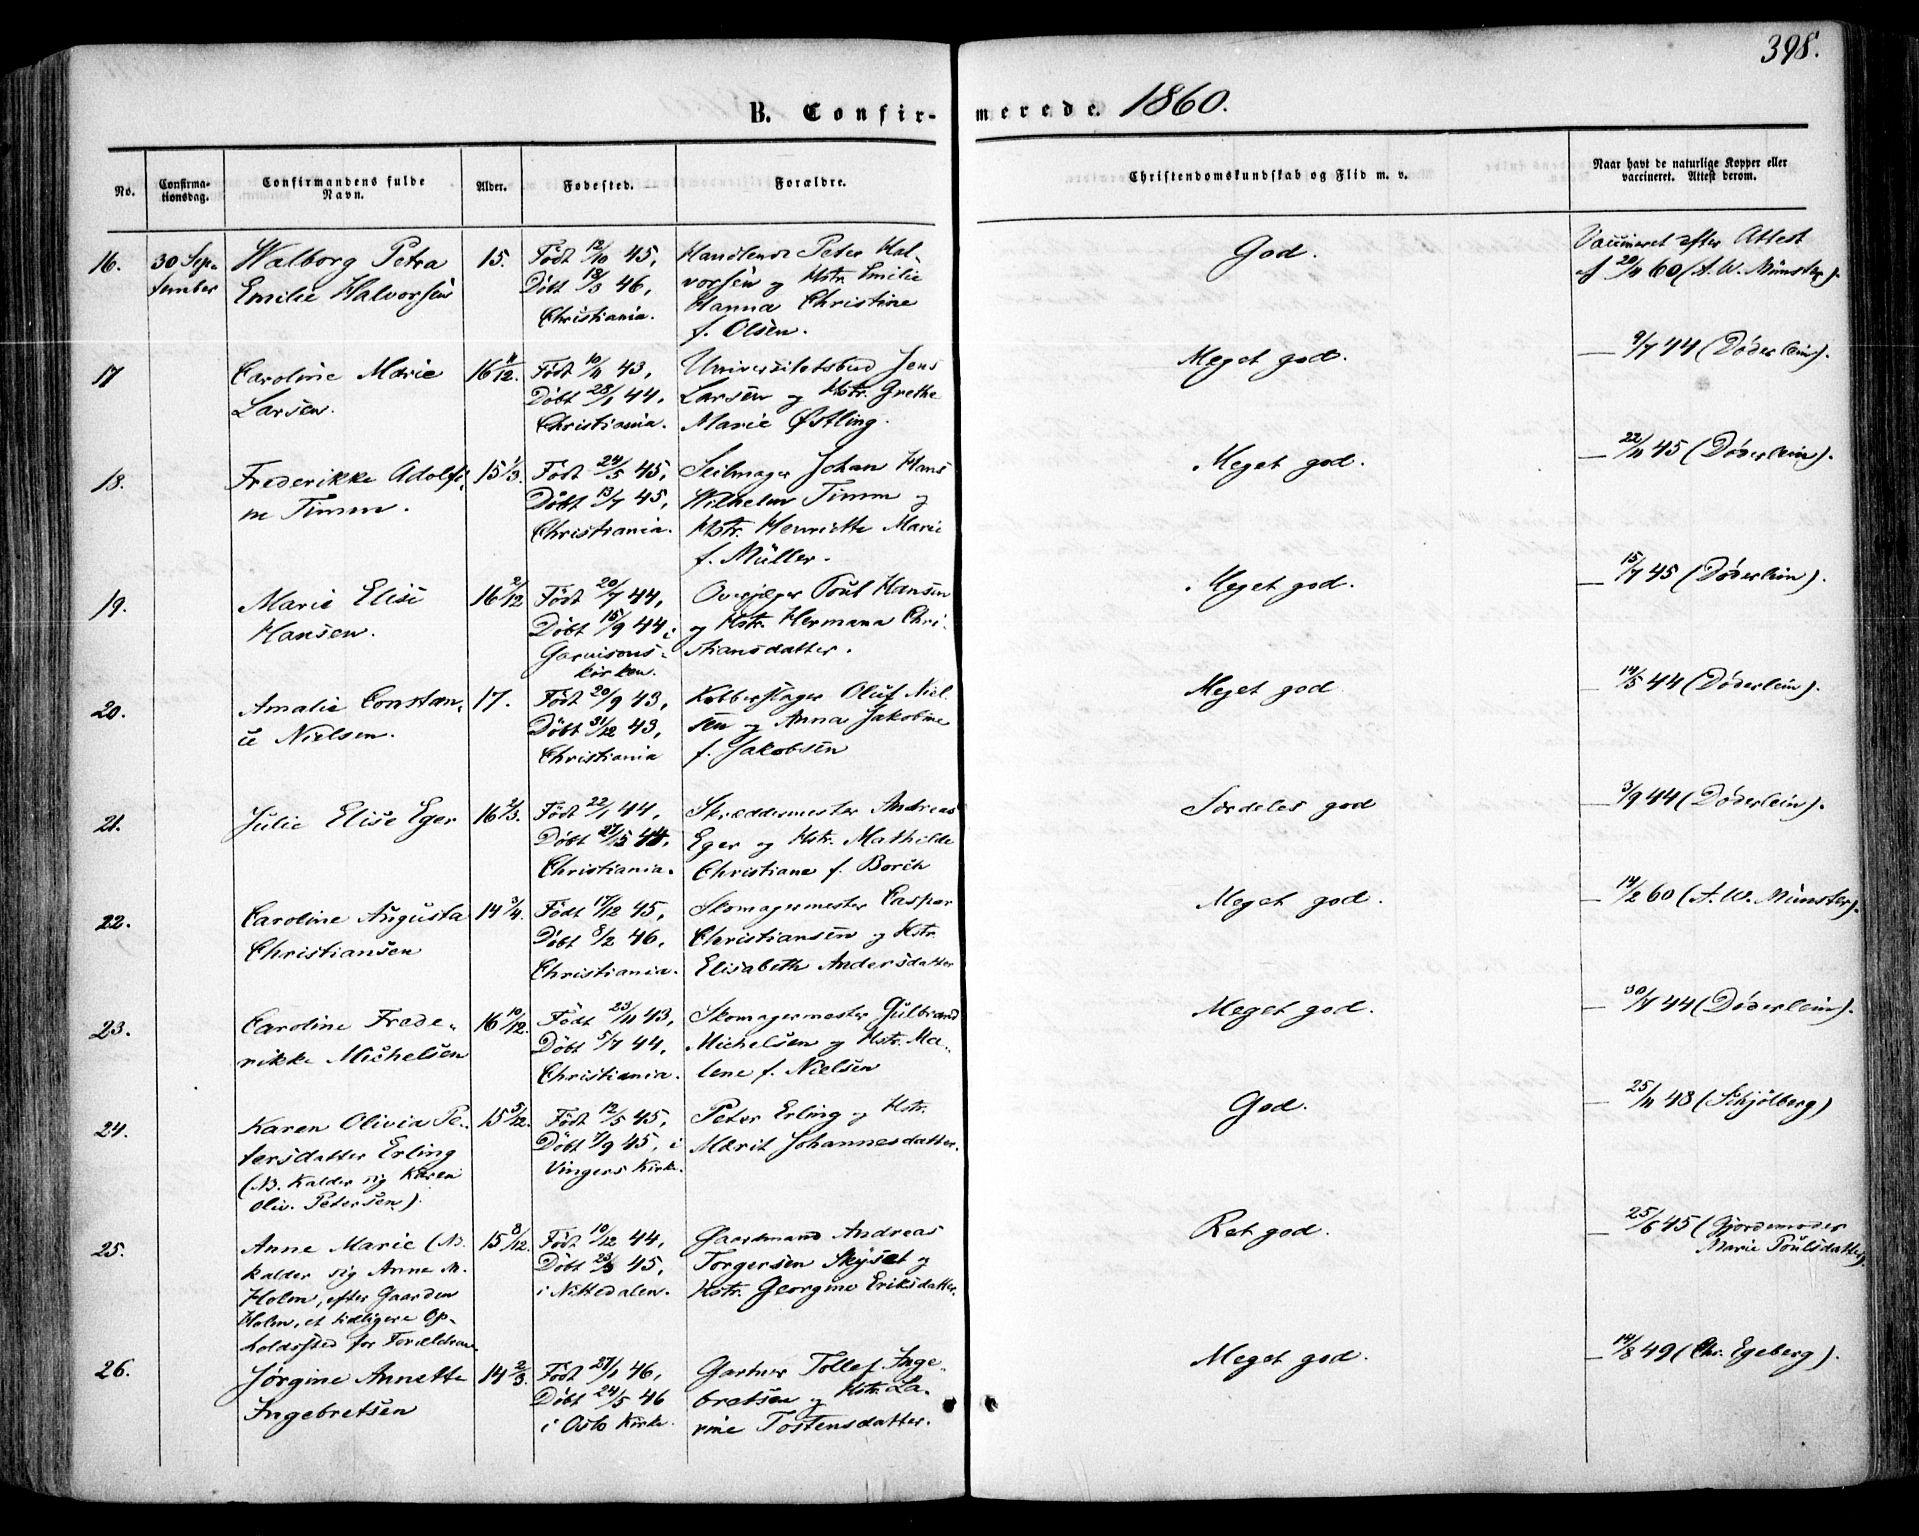 398.
B. Confir- merede. 1860.
No.
Confirma-
tionsdag.
Confirmandens fulde
Navn.
Alder.
Fødested.
Forældre.
Christendomskundskab og Flid m. v.
Naar havt de naturlige Kopper eller
vaccineret. Attest derom.
16.
30 Sep-
tember
Walborg Petra
Emilie Halvorsen
15.
Født 12/10 45,
Døbt 18/3 46,
Christiania.
Handlende Peter Hal-
vorsen og Hstr. Emilie
Hanna Christine
f. Olsen.
God.
Vaccineret efter Attest
af 20/11 60 (A. W. Münster).
17
Caroline Marie
Larsen.
16 11/12.
Født 10/11 43,
Døbt 28/1 44,
Christiania.
Universitetsbud Jens
Larsen og Hstr. Grethe
Marie Østling.
Meget god.
— 9/7 44 (Døderlein).
18.
Frederikke Adolfi-
ne Timm.
15 1/3.
Født 24/5 45,
Døbt 13/7 45,
Christiania.
Seilmager Johan Hans
Wilhelm Timm og
Hstr. Henriette Marie
f. Müller.
Meget god.
— 22/11 45 (Døderlein).
19.
Marie Elise
Hansen.
16 2/12
Født 20/7 44,
Døbt 15/9 44 i
Garnisons-
kirken.
Overjæger Poul Hansen
og Hstr. Hermana Chri-
stiansdatter.
Meget god.
— 15/7 45 (Døderlein).
20.
Amalie Constan-
ce Nielsen.
17.
Født 20/9 43,
Døbt 31/12 43,
Christiania
Kobberslager Oluf Niel-
sen og Anna Jakobine
f. Jakobsen
Meget god
— 14/5 44 (Døderlein).
21.
Julie Elise Eger
16 2/3.
Født 22/1 44,
Døbt 27/5 44,
Christiania.
Skræddermester Andreas
Eger og Hstr. Mathilde
Christiane f. Borch
Særdeles god
— 3/9 44 (Døderlein).
22.
Caroline Augusta
Christiansen
14 3/4.
Født 17/12 45,
Døbt 8/2 46,
Christiania.
Skomagermester Caspar
Christiansen og Hstr.
Elisabeth Andersdatter
Meget god.
— 14/2 60 (A. W. Münster).
23.
Caroline Frede-
rikke Michelsen
16 10/12.
Født 23/11 43,
Døbt 5/7 44,
Christiania.
Skomagermester Gulbrand
Michelsen og Hstr. Ma-
lene f. Nielsen
Meget god.
— 30/7 44 (Døderlein).
24.
Karen Olivia Pe-
tersdatter Erling
(NB. kalder sig Karen
Oliv. Petersen).
15 5/12.
Født 12/5 45,
Døbt 7/9 45, i
Vingers Kirke.
Peter Erling og Hstr.
Marit Johannesdatter.
God.
— 25/11 48 (Schjølberg)
25.
Anne Marie (NB.
kalder sig Anne M.
Holm, efter Gaarden
Holm, et tidligere Op-
holdssted for Forældrene
15 8/12.
Født 10/12 44,
Døbt 23/3 45,
i Nittedalen.
Gaardmand Andreas
Torgersen Skyset og
Hstr. Georgine Eriksdatter.
Ret god.
— 25/6 45 (Gjordemoder
Marie Poulsdatter).
26.
Jørgine Annette
Ingebretsen
14 2/3.
Født 27/1 46,
Døbt 24/5 46
i Oslo Kirke.
Gartner Tollef Inge-
bretsen og Hstr. La-
rine Tostensdatter.
Meget god.
— 14/8 49 (Chr. Egeberg).